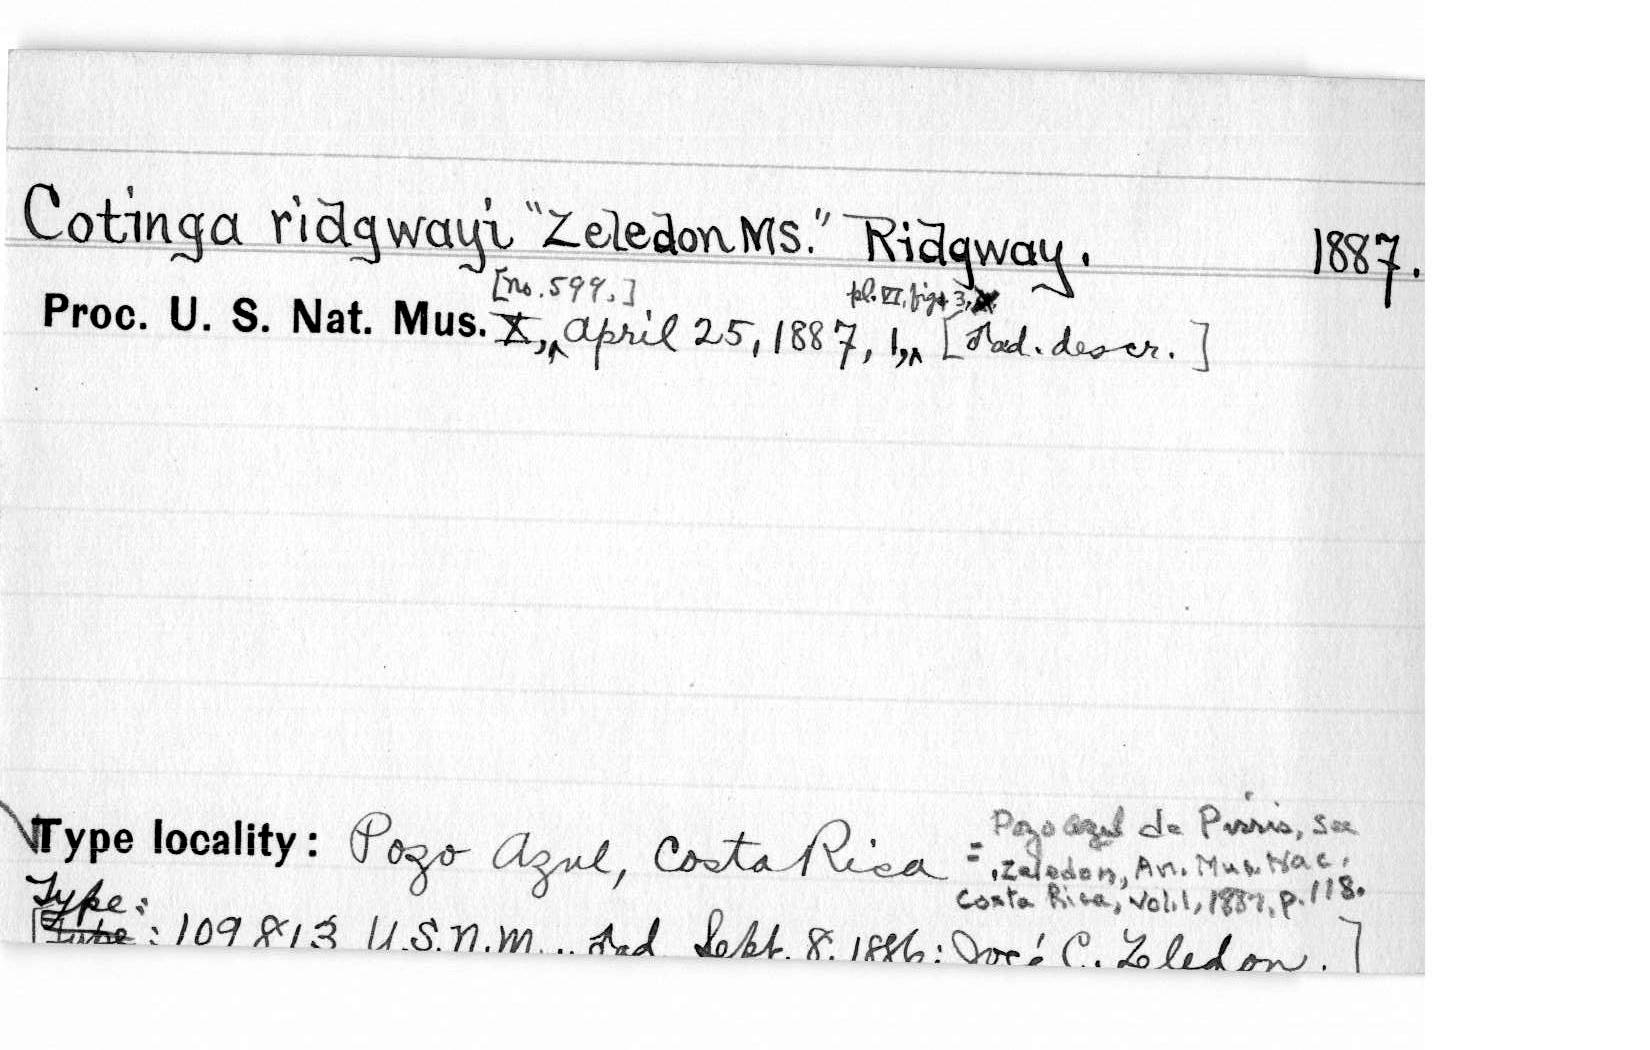 Cotinga ridgwayi "Zeledon MS." Ridgway. 1887.
[no. 599.] pl. VI, fig. 3,
Proc. U. S. Nat. Mus. X, April 25, 1887, 1, [♂ad. descr.]
Type locality: Pozo Azul, Costa Rica = Pozo Azul de Pirris, see
Zeledon, An. Mus. Nac.
Costa Rica, vol. 1, 1887, p. 118.
Type:
[Type: 109813 U.S.N.M. ♂ad. Sept. 8. 1886: José C. Zeledon.]